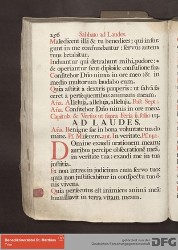 256 Sabbato ad Laudes.
Maledicent illi & tu benedices; qui insur-
gunt in me confundantur: servus autem
tuus lætabitur.
Induantur qui detrahunt mihi, pudore: &
& operiantur sicut diploide confusione sua
Confitebor Dño nimis in ore meo: & in
medio multorum laudabo eum.
Quia astitit a dextris pauperis: ut salvam
faceret a persequentibus animam meam.
Ana. Alleluja, alleluja, alleluja.
Ana. Confitebor Dño nimis in ore meo.
Capitula & Versus ut supra Feria
AD LAUDES.
Ana. Benigne fac in bona voluntate tua do-
mine. Ps. Miserere. Ana. In veritate.
Domine exaudi orationem meam:
auribus percipe obsecrationem meam
in veritate tua: exaudi me in tua
justitia.
Et non intres in judicium cum servo tuo:
quia non justificabitur in conspectu tuo
vivens.
Quia persecutus est inimicus animam meam
humiliavit in terra vitam meam.
DFG